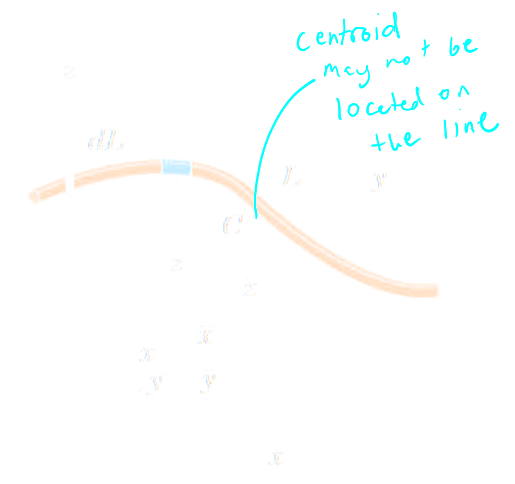 centroid
may not be
located on
the line
z
dL
L
y
C
z
z
x
x
y
y
x